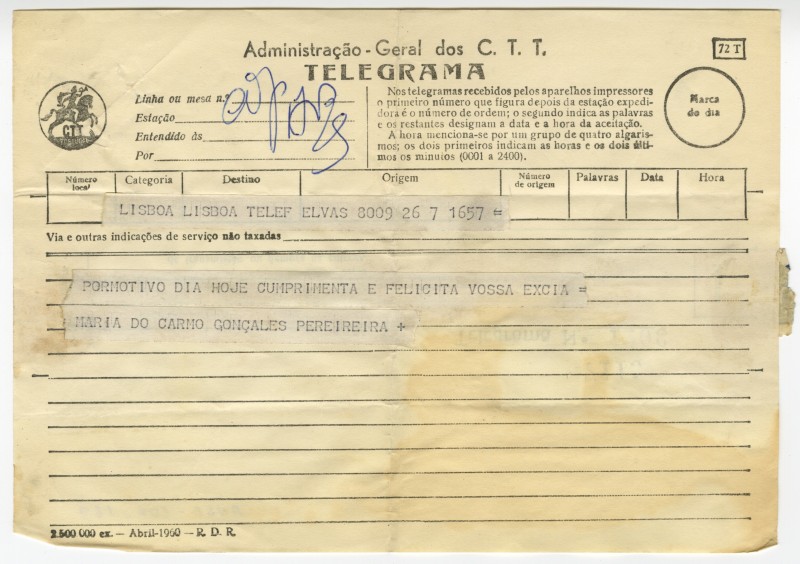 Administração-Geral dos C. T. T.
72 T
TELEGRAMA
CTT
Linha ou mesa n.º
Estação
Entendido às
Por
Nos telegramas recebidos pelos aparelhos impressores
o primeiro número que figura depois da estação expedi-
dora é o número de ordem; o segundo indica as palavras
e os restantes designam a data e a hora da aceitação.
A hora menciona-se por um grupo de quatro algaris-
mos; os dois primeiros indicam as horas e os dois últi-
mos os minutos (0001 a 2400).
Marca
do dia
Número local Categoria Destino Origem Número de origem Palavras Data Hora
LISBOA LISBOA TELEF ELVAS 8009 26 7 1657 =
Via e outras indicações de serviço não taxadas
PORMOTIVO DIA HOJE CUMPRIMENTA E FELICITA VOSSA EXCIA =
MARIA DO CARMO GONÇALES PEREIREIRA +
2.500 000 ex. — Abril-1960 — R. D. R.